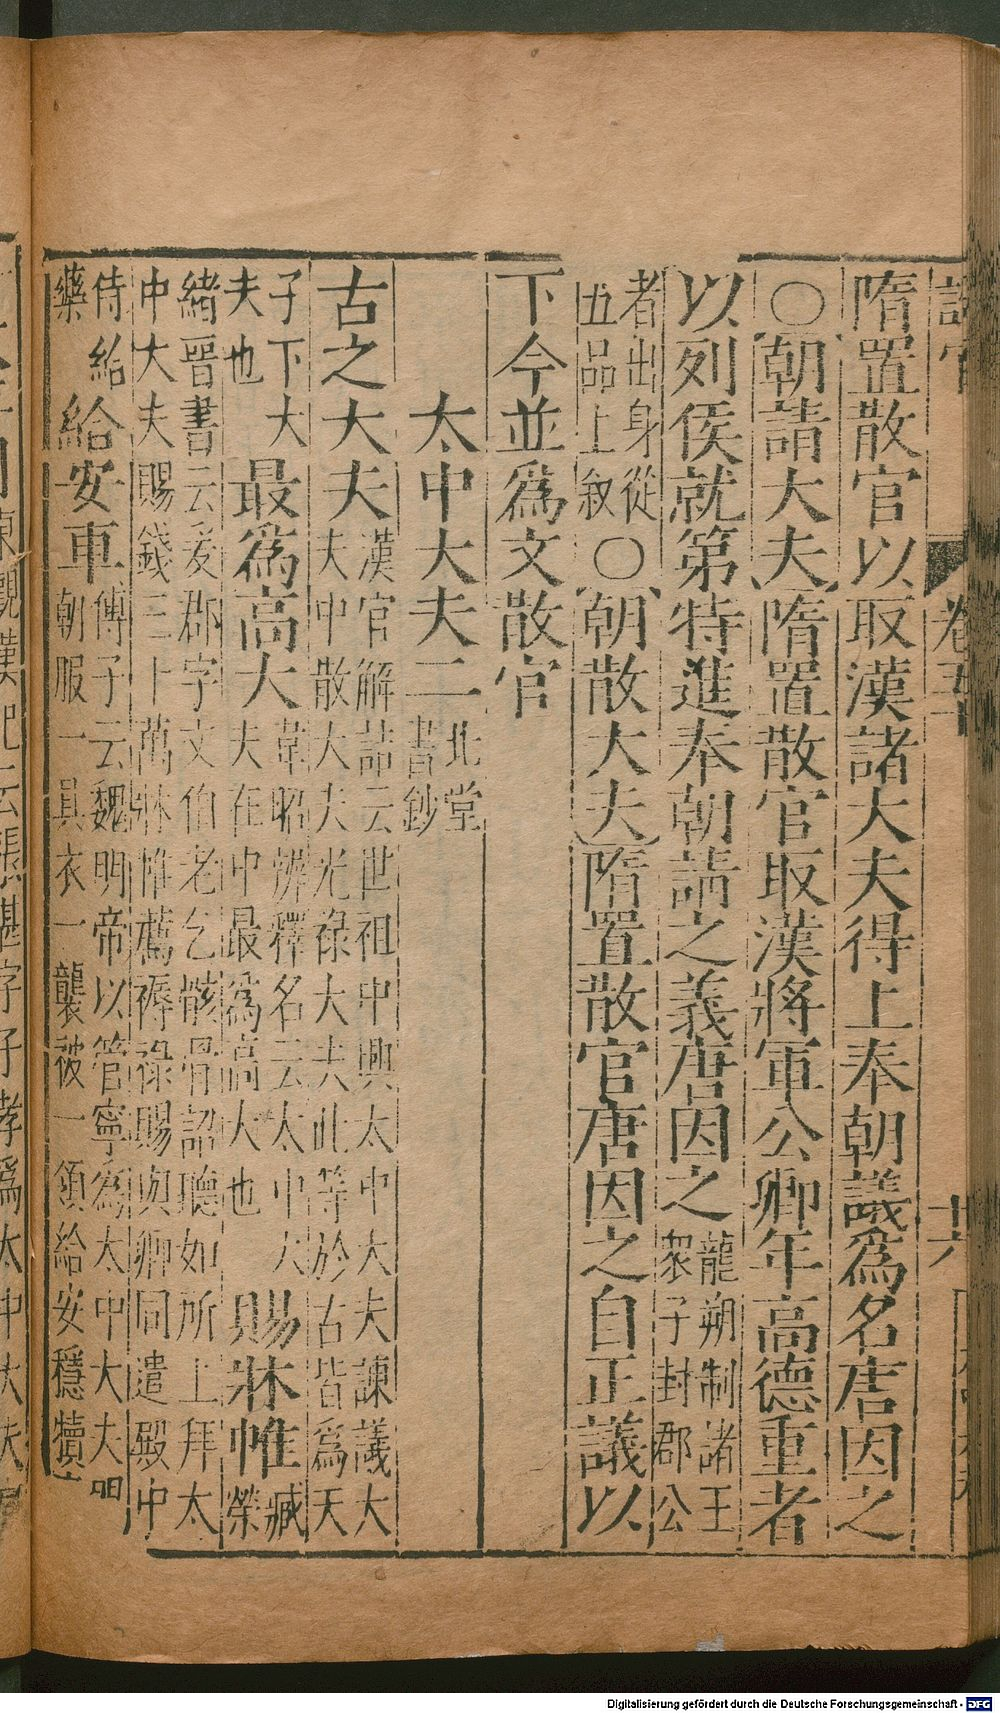 卷五
十六
隋置散官以取漢諸大夫得上奉朝議爲名唐因之
〇朝請大夫隋置散官取漢將軍公卿年高德重者
以列侯就第特進奉朝請之義唐因之龍朔制諸王衆子封郡公
者出身從五品上叙〇朝散大夫隋置散官唐因之自正議以
下今並爲文散官
太中大夫二北堂書鈔
古之大夫漢官解詁云世祖中興太中大夫諫議大夫中散大夫光祿大夫此等於古皆爲天
子下大夫也最爲高大韋昭辨釋名云太中大夫在中最爲高大也賜牀帷臧榮
緒晉書云爰郡字文伯老乞骸骨詔聽如所上拜太中大夫賜錢三十萬牀帷薦褥祿賜與卿同遣殿中
侍給藥給安車傅子云魏明帝以管寧爲太中大夫朝服一具衣一襲被一領給安穩犢
東觀漢記云張湛字子孝爲太中大夫
Digitalisierung gefördert durch die Deutsche Forschungsgemeinschaft - DFG